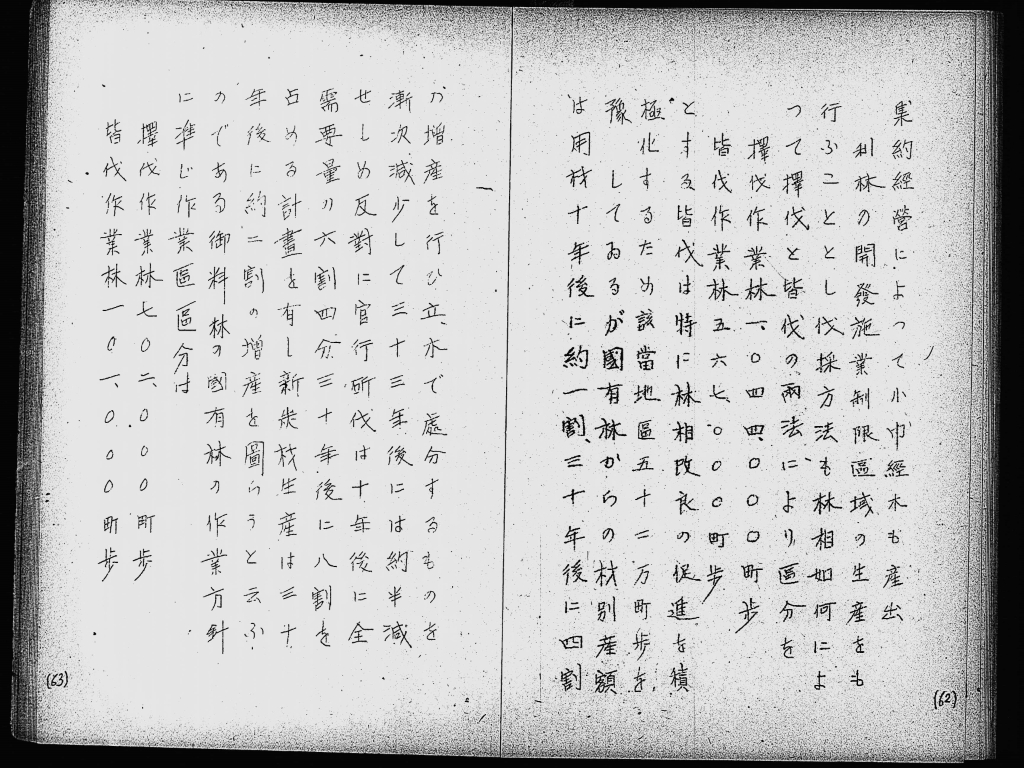 集約經營によつて小巾經木も產出
利林の開發施業制限區域の生產をも
行ふこととし伐採方法も林相如何によ
つて擇伐と皆伐の兩法により區分を
擇伐作業林一、〇四四、〇〇〇町步
皆伐作業林五六七、〇〇〇町步
とする皆伐は特に林相改良の促進を積
極化するため該當地區五十二万町步を
豫してゐるが國有林からの材別產額
は用材十年後に約一割三十年後に四割
(62)
の增產を行ひ立木で處分するものを
漸次減少して三十三年後には約半減
せしめ反對に官行斫伐は十年後に全
需要量の六割四分三十年後に八割を
占める計畫を有し新炭材生產は三十
年後に約二割の增產を圖らうと云ふ
のである御料林の國有林の作業方針
に準じ作業區區分は
擇伐作業林七〇二、〇〇〇町步
皆伐作業林一〇一、〇〇〇町步
(63)